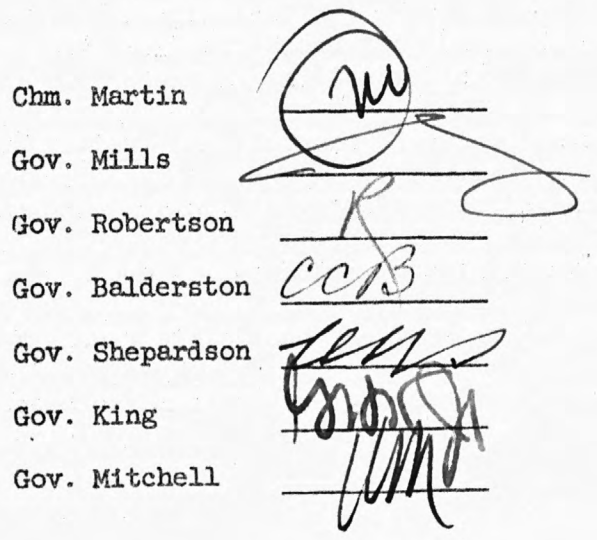 Chm. Martin m
Gov. Mills
Gov. Robertson R
Gov. Balderston CCB
Gov. Shepardson
Gov. King
Gov. Mitchell